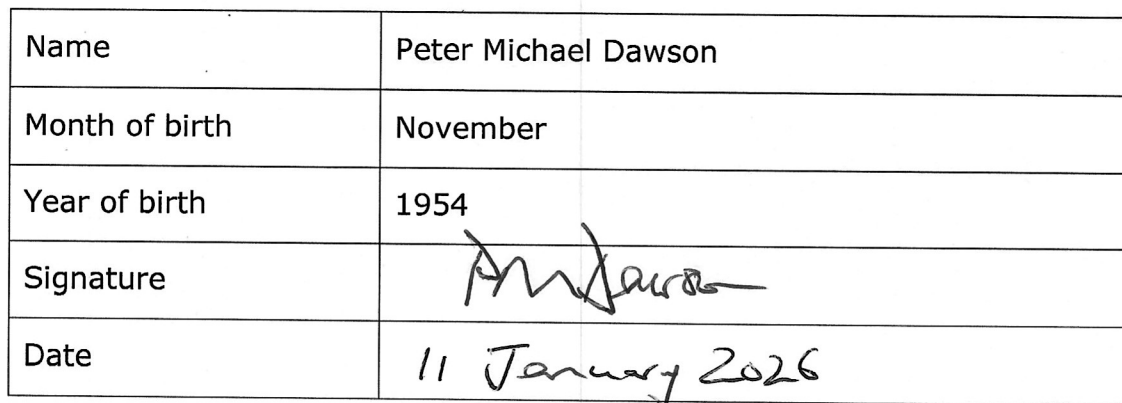 Name Peter Michael Dawson
Month of birth November
Year of birth 1954
Signature PMDawson
Date 11 January 2026